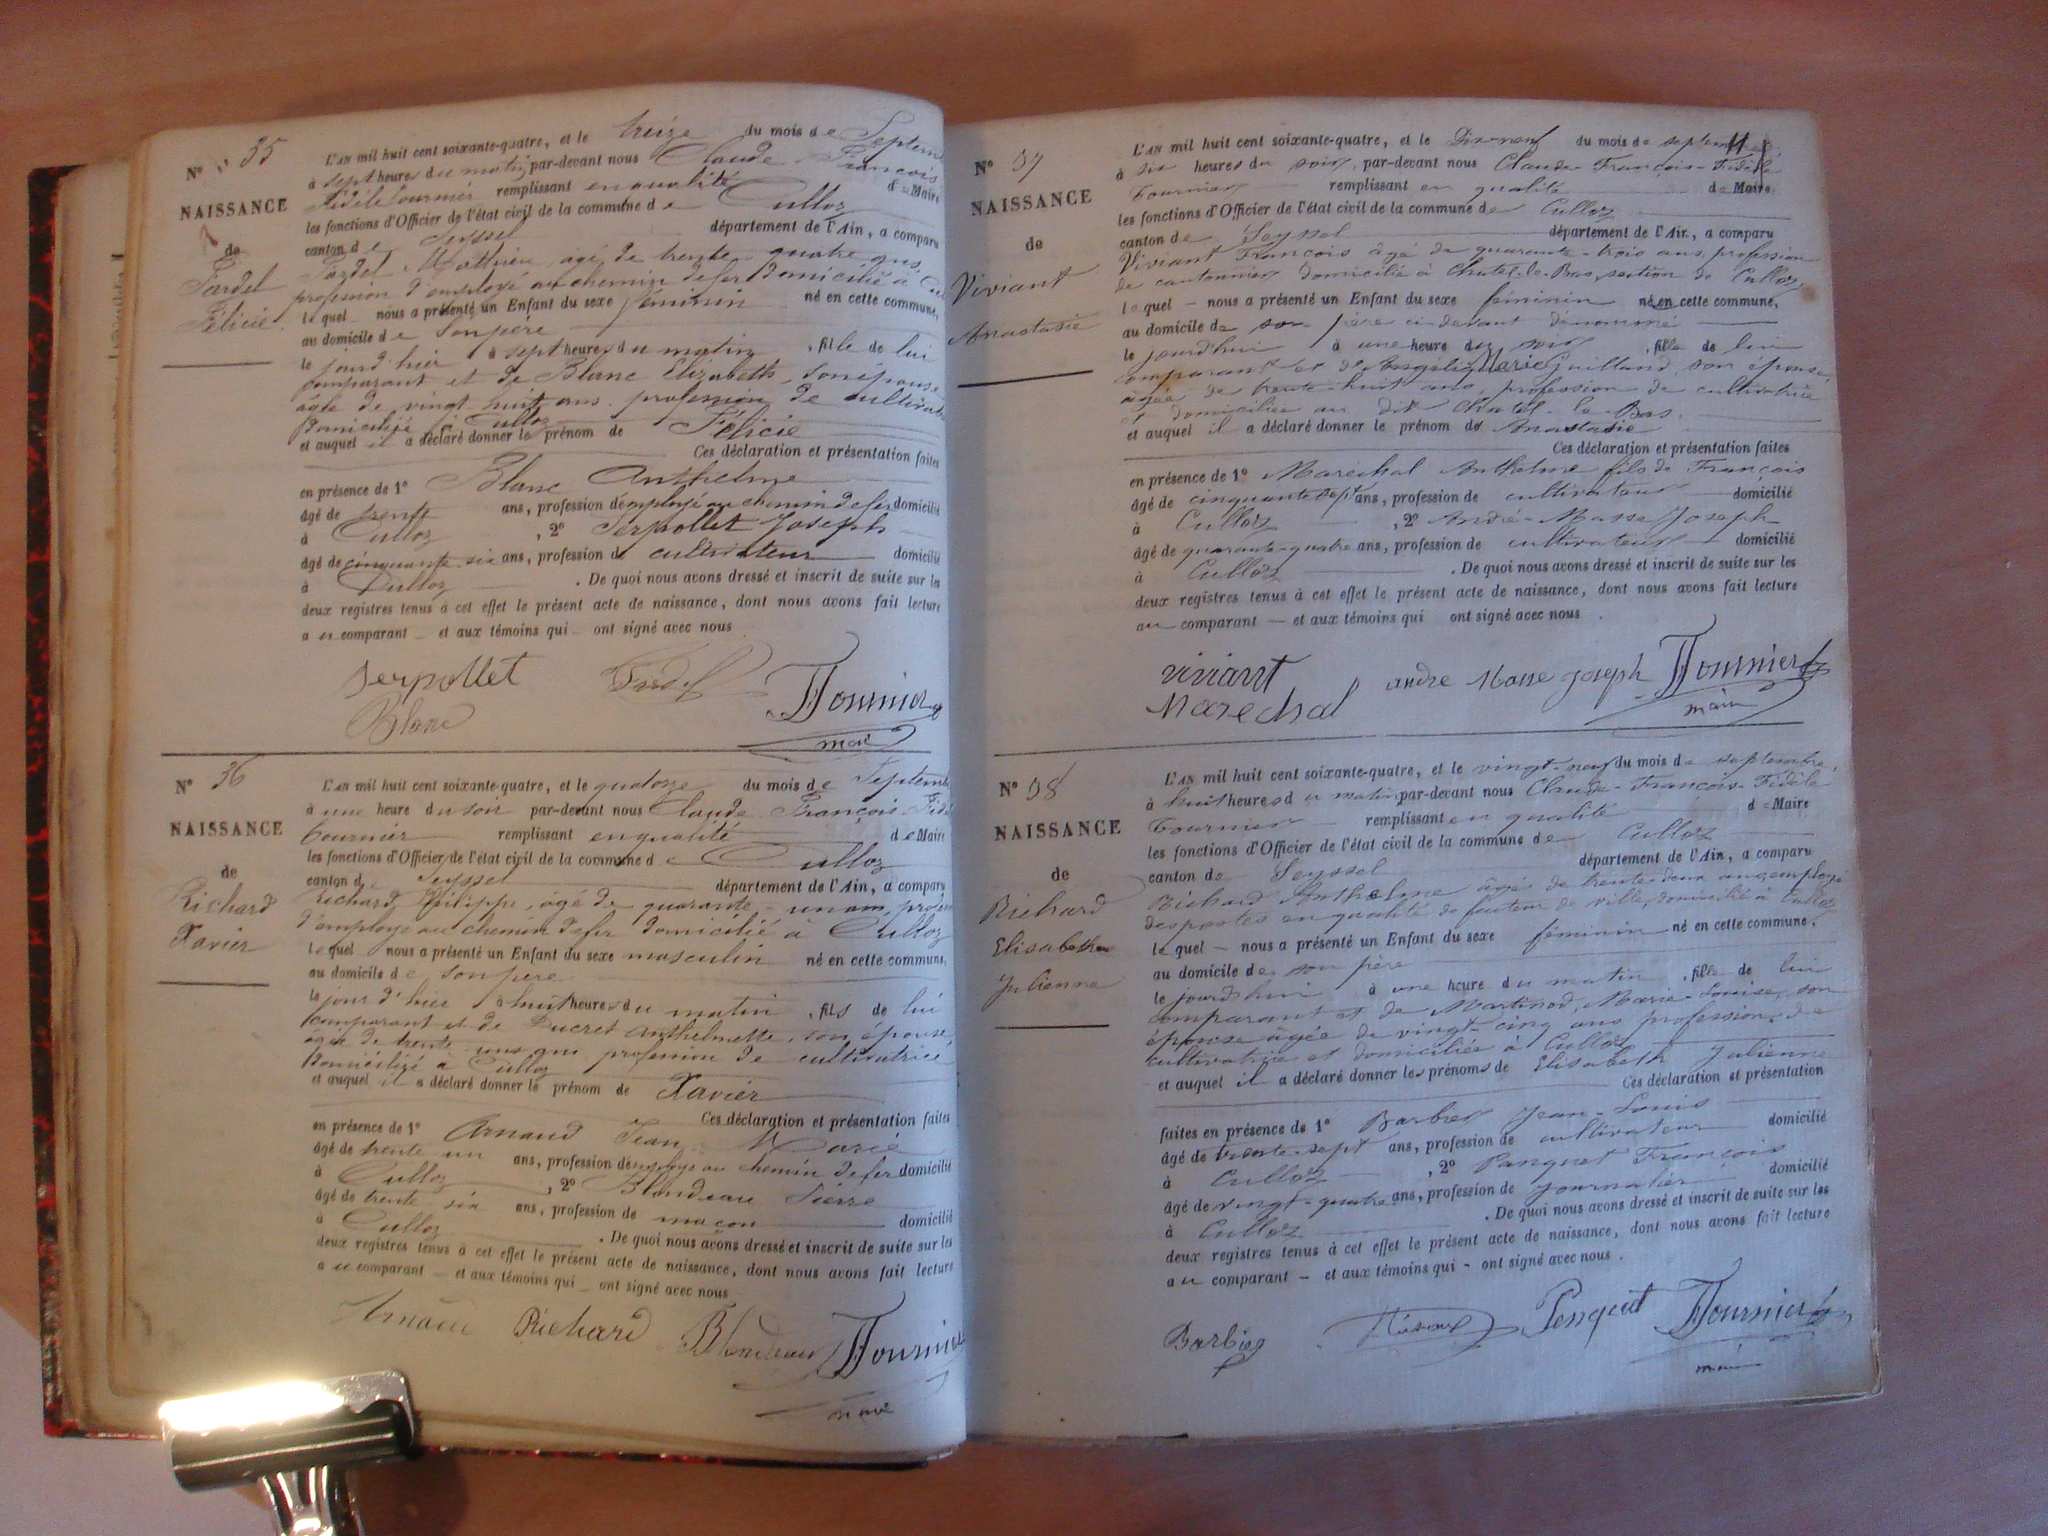 N° 35
NAISSANCE
de
Fardel
Félicie
L'AN mil huit cent soixante-quatre, et le treize du mois de Septem
à sept heures du matin par-devant nous Claude François
Fidèle fournier remplissant en qualité de Maire
les fonctions d'Officier de l'état civil de la commune de Culloz
canton de Seyssel département de l'Ain, a comparu
Fardel Mathieu, agé de trente quatre ans
profession d'employé au chemin de fer Domicilié à Cul
lequel nous a présenté un Enfant du sexe féminin né en cette commune,
au domicile de son père
le jour d'hier à sept heures du matin, fille de lui
comparant et de Blanc Elizabeth, son épouse
âgée de vingt-huit ans profession de cultivat
Domicilié à Culloz
et auquel il a déclaré donner le prénom de Félicie
Ces déclaration et présentation faites
en présence de 1° Blanc Anthelme
âgé de trente ans, profession d'employé au chemin de fer domicilié
à Culloz, 2° Serpollet Joseph
âgé de cinquante six ans, profession de cultivateur domicilié
à Culloz. De quoi nous avons dressé et inscrit de suite sur les
deux registres tenus à cet effet le présent acte de naissance, dont nous avons fait lecture
au comparant et aux témoins qui ont signé avec nous
Serpollet Fardel Fournier
Blanc maire
N° 36
NAISSANCE
de
Richard
Xavier
L'AN mil huit cent soixante-quatre, et le quatorze du mois de Septemb
à une heure du soir par-devant nous Claude François Fidè
fournier remplissant en qualité de Maire
les fonctions d'Officier de l'état civil de la commune de Culloz
canton de Seyssel département de l'Ain, a comparu
Richard Philippe, âgé de quarante-un ans, profess
d'employé au chemin de fer domicilié à Culloz
lequel nous a présenté un Enfant du sexe masculin né en cette commune,
au domicile de son père
le jour d'hier à huit heures du matin, fils de lui
comparant et de Ducret Anthelmette, son épouse
âgée de trente-uns ans profession de cultivatrice
Domiciliée à Culloz
et auquel il a déclaré donner le prénom de Xavier
Ces déclaration et présentation faites
en présence de 1° Arnaud Jean Marie
âgé de trente un ans, profession d'employé au chemin de fer domicilié
à Culloz, 2° Blondeau Pierre
âgé de trente six ans, profession de maçon domicilié
à Culloz. De quoi nous avons dressé et inscrit de suite sur les
deux registres tenus à cet effet le présent acte de naissance, dont nous avons fait lecture
au comparant et aux témoins qui ont signé avec nous
Arnaud Richard Blondeau Fournier
maire
N° 37
NAISSANCE
de
Viviant
Anastasie
L'AN mil huit cent soixante-quatre, et le Dix-neuf du mois de septem
à six heures du soir, par-devant nous Claude-François-Fidèle
Fournier remplissant en qualité de Maire
les fonctions d'Officier de l'état civil de la commune de Culloz
canton de Seyssel département de l'Ain, a comparu
Viviant François âgé de quarante-trois ans, profession
de cantonnier domicilié à Chatel-le-Bas, section de Culloz,
lequel nous a présenté un Enfant du sexe féminin né en cette commune,
au domicile de son père ci-devant dénommé
le jourd'hui à une heure du soir, fille de lui
comparant et d'Angélix Marie Guilland, son épouse,
agée de trente-huit ans, profession de cultivatrice
et domiciliée au dit Chatel-le-Bas.
et auquel il a déclaré donner le prénom de Anastasie
Ces déclaration et présentation faites
en présence de 1° Marechal Anthelme fils de François
âgé de cinquante sept ans, profession de cultivateur domicilié
à Culloz, 2° André-Masse Joseph
âgé de quarante-quatre ans, profession de cultivateur domicilié
à Culloz. De quoi nous avons dressé et inscrit de suite sur les
deux registres tenus à cet effet le présent acte de naissance, dont nous avons fait lecture
au comparant et aux témoins qui ont signé avec nous.
viviant andre Masse joseph Fournier
Marechal maire
N° 38
NAISSANCE
de
Richard
Elisabeth
Julienne
L'AN mil huit cent soixante-quatre, et le vingt-neuf du mois de septembre,
à huit heures du matin, par-devant nous Claude-François-Fidèle
Fournier remplissant en qualité de Maire
les fonctions d'Officier de l'état civil de la commune de Culloz
canton de Seyssel département de l'Ain, a comparu
Richard Anthelme âgé de trente-deux ans, employé
des postes en qualité de facteur de ville, domicilié à Culloz
lequel nous a présenté un Enfant du sexe féminin né en cette commune,
au domicile de son père
le jourd'hui à une heure du matin, fille de lui
comparant et de Martinod, Marie-Louise, son
épouse âgée de vingt-cinq ans profession de
cultivatrice et domiciliée à Culloz
et auquel il a déclaré donner les prénoms de Elisabeth Julienne
Ces déclaration et présentation
faites en présence de 1° Barbier Jean-Louis domicilié
âgé de trente-sept ans, profession de cultivateur
à Culloz, 2° Panquet François
âgé de vingt-quatre ans, profession de journalier domicilié
à Culloz. De quoi nous avons dressé et inscrit de suite sur les
deux registres tenus à cet effet le présent acte de naissance, dont nous avons fait lecture
au comparant et aux témoins qui ont signé avec nous.
Barbier Penquet Fournier
maire